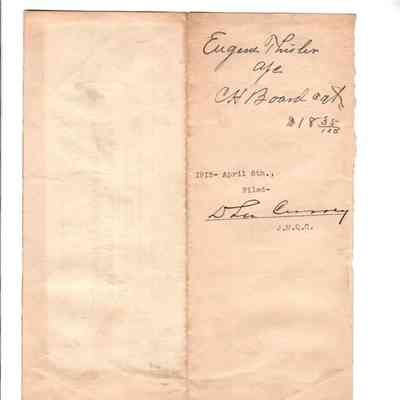 Eugene Thisler
a/c
C H Board a/c
$18 35/100
1915- April 8th.,
Filed-
D Lee
J.M.C.C.